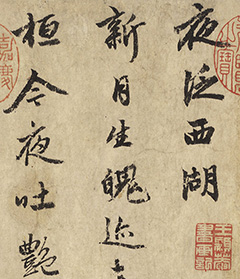 夜泛西湖
新月生魄迹
桓今夜吐艷
嘉慶